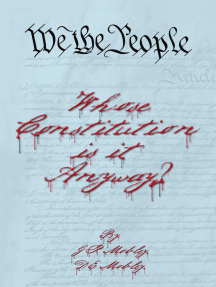 We the People
Whose
Constitution
is it
Anyway?
By
J. P. Mobley
D E Mobley